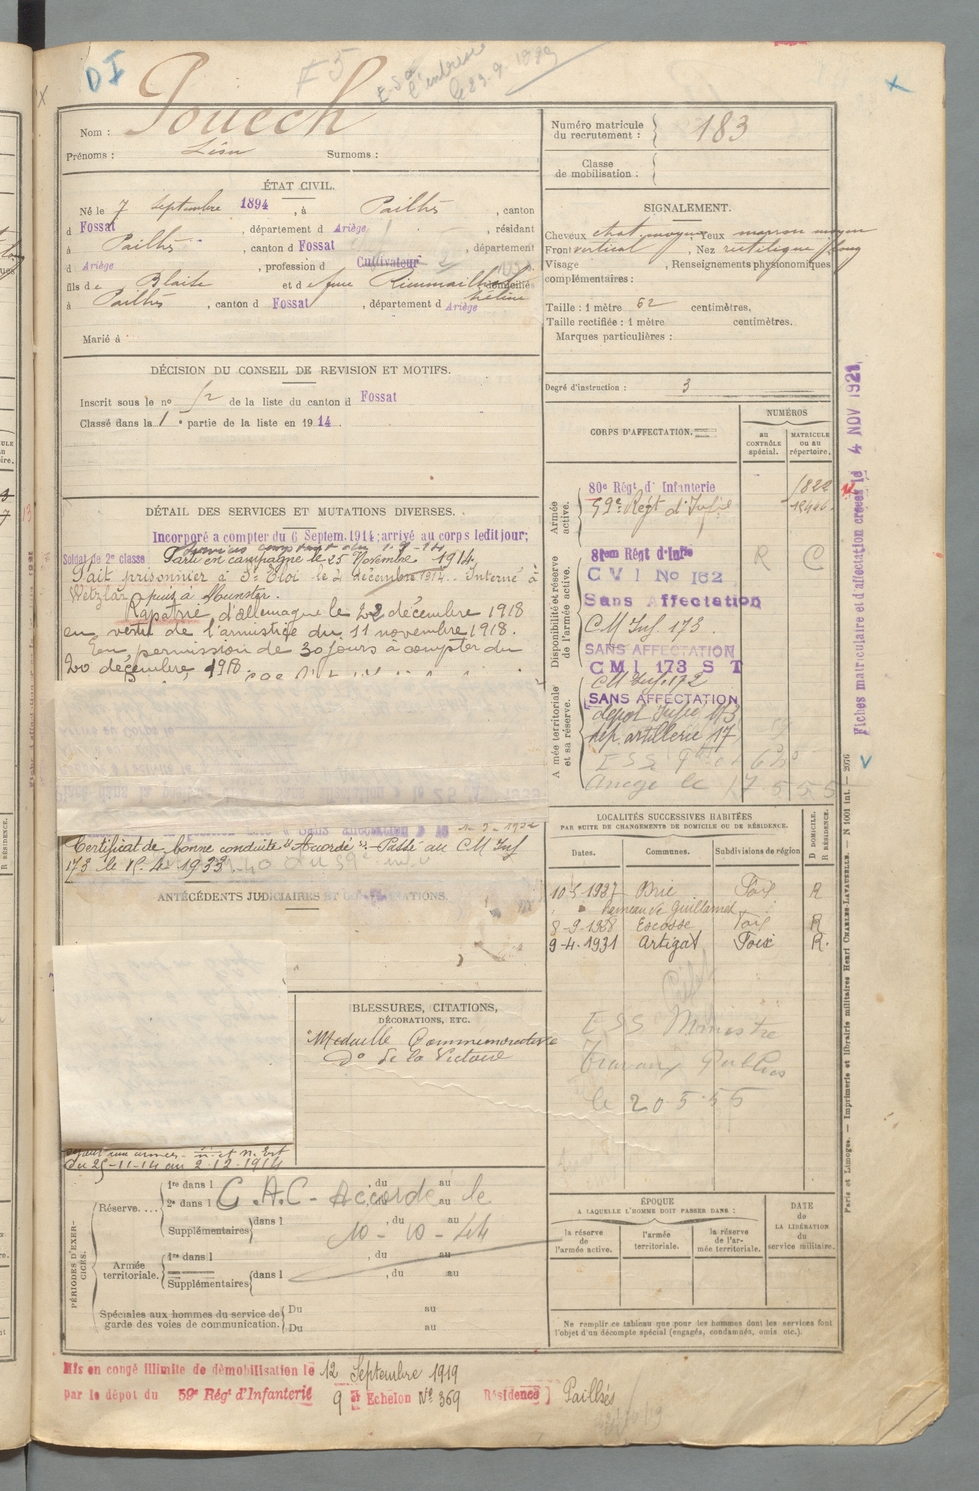 DI
F 5
le 23.9.1939
Nom : Pouech
Prénoms : Léon Surnoms :
Numéro matricule du recrutement : 183
Classe de mobilisation :
ÉTAT CIVIL.
Né le 7 septembre 1894, à Pailhès, canton
d Fossat, département d Ariège, résidant
à Pailhès, canton d Fossat, département
d Ariège, profession d Cultivateur
fils de Blaise et de domiciliés
à Pailhès, canton d Fossat, département d Ariège
Marié à
SIGNALEMENT.
Cheveux chat. moyen, Yeux marron moyen
Front vertical, Nez rectiligne long
Visage, Renseignements physionomiques
complémentaires :
Taille : 1 mètre 62 centimètres,
Taille rectifiée : 1 mètre centimètres.
Marques particulières :
Degré d'instruction : 3
DÉCISION DU CONSEIL DE REVISION ET MOTIFS.
Inscrit sous le no 52 de la liste du canton d Fossat
Classé dans la 1e partie de la liste en 1914.
CORPS D'AFFECTATION.
NUMÉROS
au CONTRÔLE spécial.
MATRICULE ou au répertoire.
Armée active.
80e Régt d'Infanterie
59e Régt d'Infie
Disponibilité et réserve de l'armée active.
81em Régt d'Infie R C
C V I No 162
Sans Affectation
CM Inf 173.
SANS AFFECTATION
C M I 173 S T
Armée territoriale et sa réserve.
CM Inf. 172
SANS AFFECTATION
dépot Infie 173
dép. artillerie 17
Fiches matriculaire et d'affectation créées le 4 NOV 1921
DÉTAIL DES SERVICES ET MUTATIONS DIVERSES.
Incorporé a compter du 6 Septem.1914; arrivé au corps ledit jour;
Services comptant du 1-9-14
Soldat de 2e classe Parti en campagne le 25 Novembre 1914.
Fait prisonnier à St Eloi le 2 décembre 1914. Interné à
Wetzlar puis à Munster.
Rapatrié d'allemagne le 22 décembre 1918
en vertu de l'armistice du 11 novembre 1918.
En permission de 30 jours à compter du
20 décembre 1918.
Certificat de bonne conduite "Accordé". Passé au CM Inf
173 le 15.4.1933
ANTÉCÉDENTS JUDICIAIRES ET CONDAMNATIONS.
LOCALITÉS SUCCESSIVES HABITÉES
PAR SUITE DE CHANGEMENTS DE DOMICILE OU DE RÉSIDENCE.
Dates. Communes. Subdivisions de région D DOMICILE. R RÉSIDENCE.
10-5-1927 Brie Foix R
8-9-1928 Escosse Foix R
9-4-1931 Artigat Foix R.
ESS Ministre
Travaux Publics
le 20.5.55
BLESSURES, CITATIONS,
DÉCORATIONS, ETC.
Médaille Commémorative
do de la Victoire
du 25-11-14 au 2-12-1914
PÉRIODES D'EXERCICES.
Réserve....
1re dans l , du au
2e dans l , du au
Supplémentaires dans l , du au
C.A.C - Accordé le
10 - 10 - 44
Armée territoriale.
1re dans l , du au
Supplémentaires dans l , du au
Spéciales aux hommes du service de garde des voies de communication.
Du au
Du au
ÉPOQUE
A LAQUELLE L'HOMME DOIT PASSER DANS :
la réserve de l'armée active.
l'armée territoriale.
la réserve de l'armée territoriale.
DATE DE LA LIBÉRATION du service militaire.
Ne remplir ce tableau que pour les hommes dont les services font
l'objet d'un décompte spécial (engagés, condamnés, omis etc.).
Mis en congé illimité de démobilisation le 12 Septembre 1919
par le dépot du 59e Régt d'Infanterie 9e Echelon No 369 Résidence Pailhès
Paris et Limoges. — Imprimerie et librairie militaires Henri CHARLES-LAVAUZELLE. — N 1001 int. — 2076